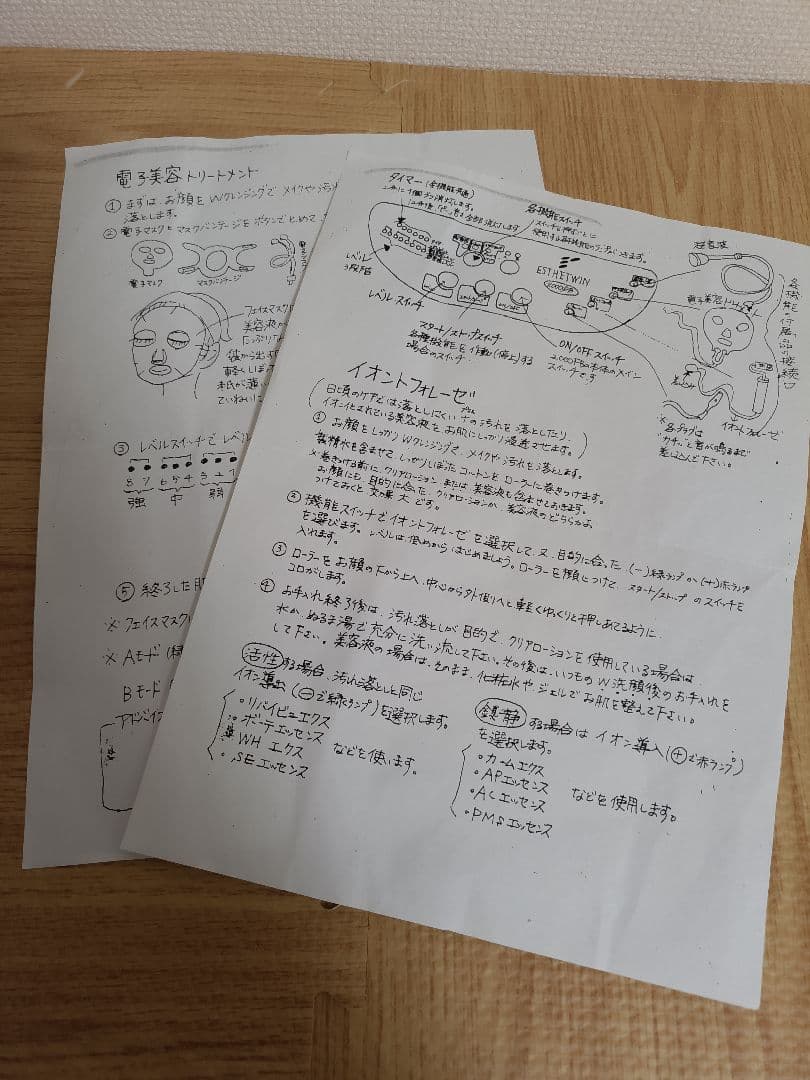 電子美容トリートメント
① まずは、お顔をWクレンジングで メイクや汚れ
落とします。
② 電子マスクとマスクバンテージをボタンでとめて
電子マスク
マスクバンテージ
フェイスマスク
美容液が
軽くしぼって
③ レベルスイッチで レベル
8 7 6 5 4 3 2 1
強 中 弱
⑤ 終了した
※ フェイスマスク
※ Aモード(緑
Bモード
アドバイス
タイマー(各機能共通)
各機能スイッチ
レベル
3段階
レベル スイッチ
ESTHETWIN
2000PB
スタート/ストップスイッチ
各種機能を作動(停止)する
場合のスイッチ
ON/OFF スイッチ
2000PB本体のメイン
スイッチです
電子美容トリートメント
イオントフォレーゼ
各機能・付属品の接続口
※ 各プラグは
"カチッ"と音が鳴るまで
差込んで下さい。
イオントフォレーゼ
(日頃のケアでは落としにくい の汚れを落としたり、
イオン化されている美容液をお肌にしっかり浸透させます。)
① お顔をしっかりWクレンジングで、メイクや汚れを落とします。
精製水を含ませて しっかりしぼった コットンを ローラーに巻きつけます。
※ 巻きつける前に、クリアローション または 美容液も含ませておきます。
お顔にも、目的に合った、クリアローションか、美容液のどちらかを
つけておくと 効果大 です。
② 機能スイッチでイオントフォレーゼを選択して、又、目的に合った(-)緑ランプか(+)赤ランプ
を選びます。レベルは低めからはじめましょう。ローラーを顔につけて、スタート/ストップ のスイッチを
入れます。
③ ローラーをお顔の下から上へ、中心から外側へと軽くゆっくりと押しあてるように、
コロがします。
④ お手入れ終了後は、汚れ落としが目的で、クリアローションを使用している場合は
水か、ぬるま湯で充分に洗い流して下さい。その後は、いつものW洗顔後のお手入れを
して下さい。美容液の場合は、そのまま、化粧水や、ジェルでお肌を整えて下さい。
活性する場合、汚れ落としと同じ
イオン導出(⊖で緑ランプ)を選択します。
・リバイビューエクス
・ボーテエッセンス
・WH エクス
・SEエッセンス
などを使います。
鎮静する場合は イオン導入(⊕で赤ランプ)
を選択します。
・カームエクス
・APエッセンス
・ACエッセンス
・PMSエッセンス
などを使用します。